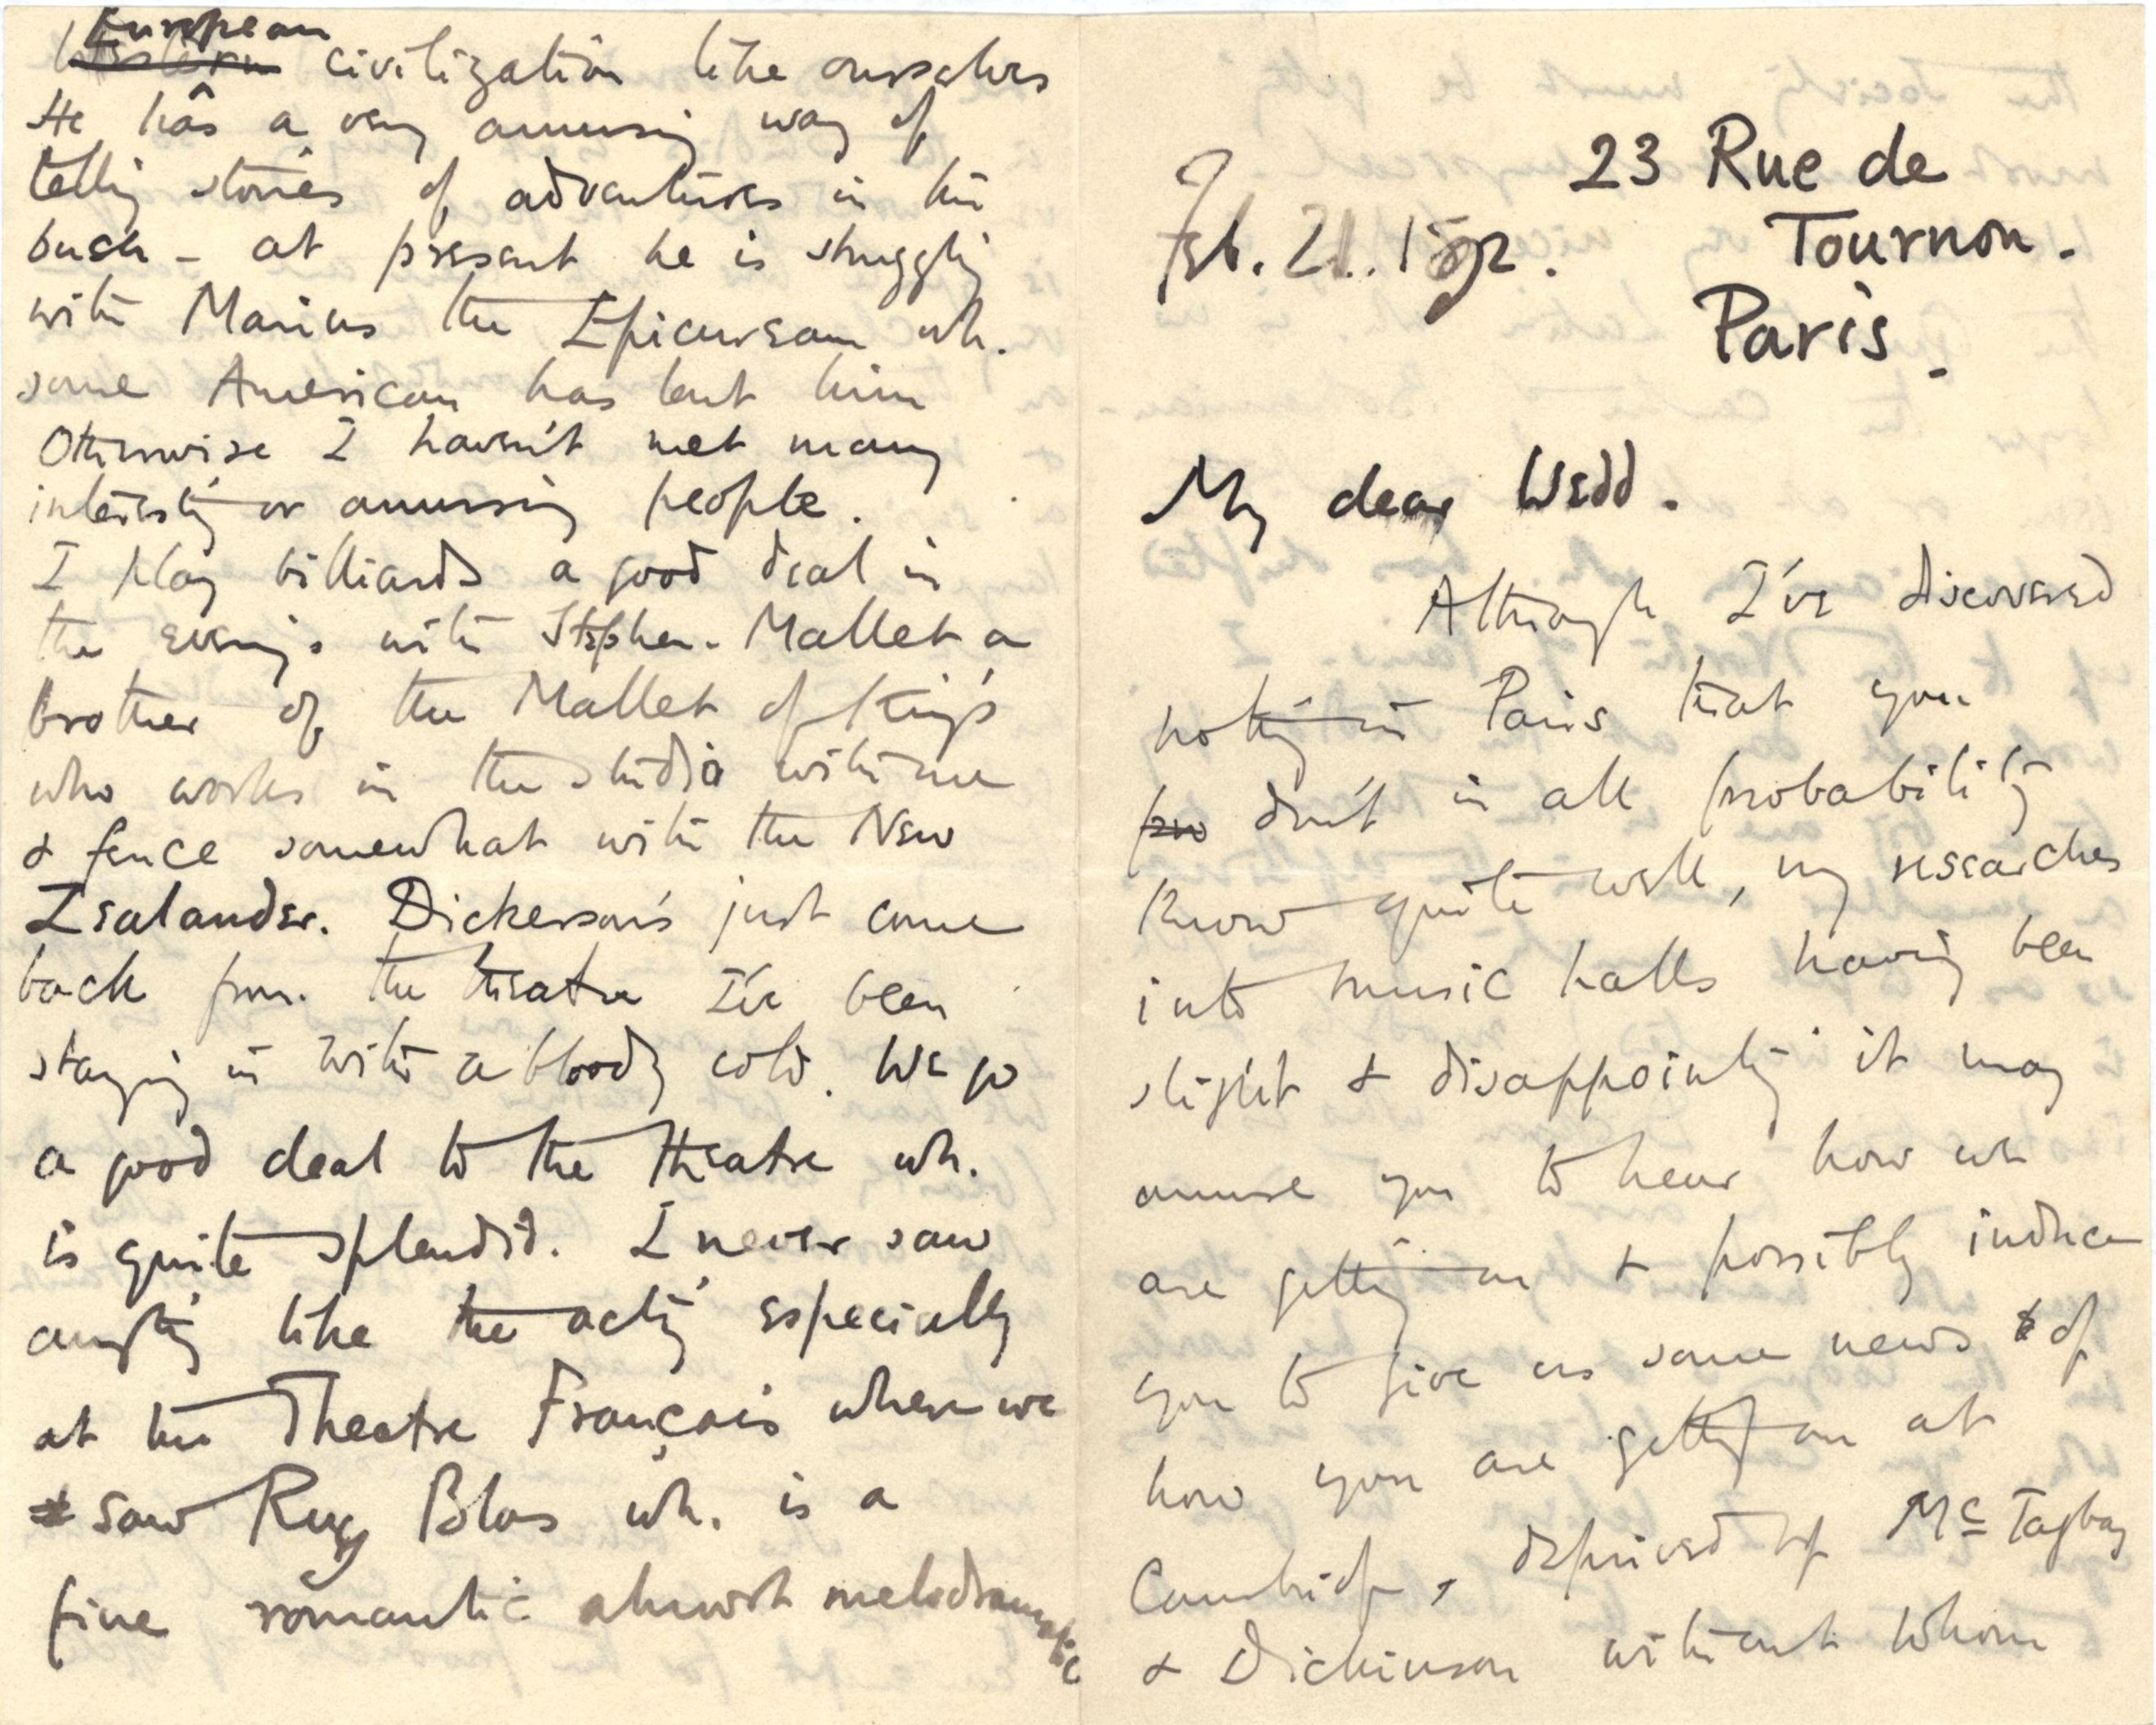 23 Rue de
Tournon.
Paris.
Feb. 21. 1892.
My dear Wedd.
Although I've discovered
nothing in Paris that you
pro don't in all probability
know quite well, my researches
into music halls having been
slight & disappointing it may
amuse you to hear how we
are getting on & possibly induce
you to give us some news of
how you are getting on at
Cambridge, deprived of McTaggart
& Dickinson without whom
Western European civilization like ourselves
He has a very amusing way of
telling stories of adventures in the
bush - at present he is struggling
with Marius the Epicurean wh.
some American has lent him
Otherwise I haven't met many
interesting or amusing people.
I play billiards a good deal in
the evenings with Stephen. Mallet a
brother of the Mallet of King's
who works in the studio with me
& fence somewhat with the New
Zealander. Dickinson's just come
back from the theatre I've been
staying in with a bloody cold. We go
a good deal to the theatre wh.
is quite splendid. I never saw
anything like the acting especially
at the Theatre Français where we
saw Ruy Blas wh. is a
fine romantic almost melodramatic